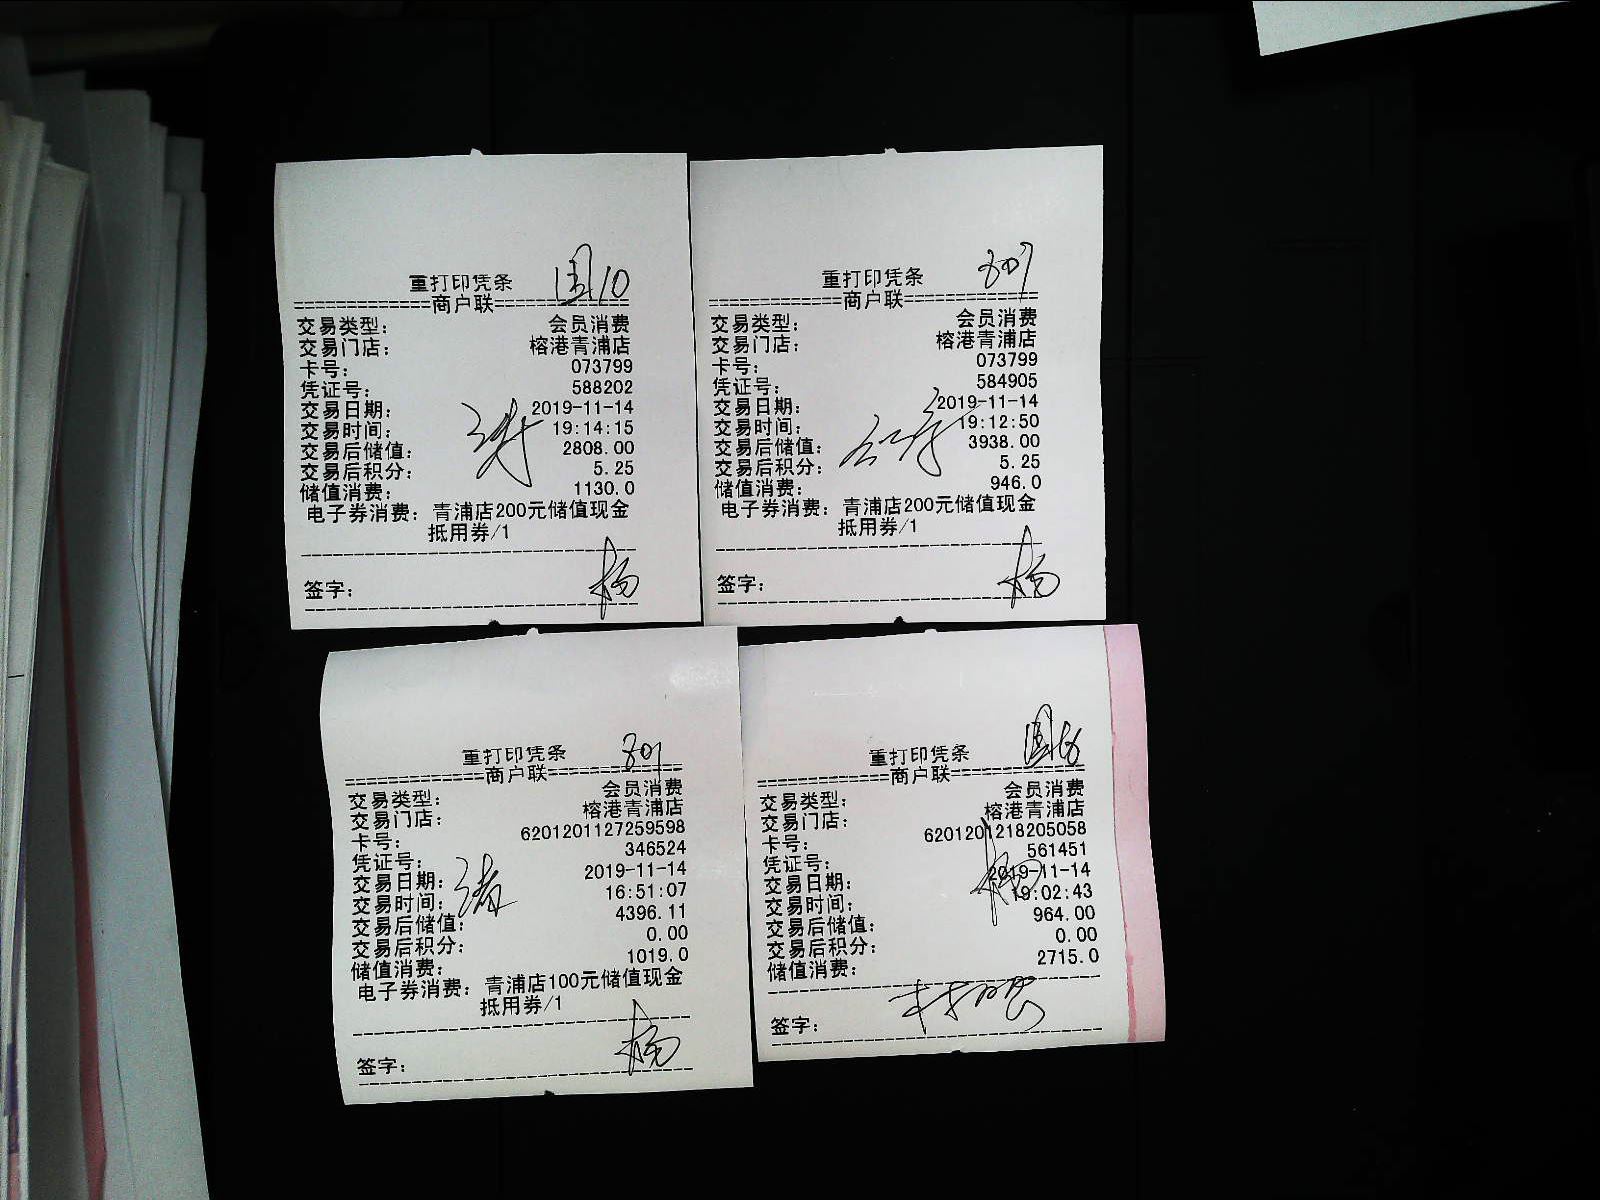 重打印凭条 国10
==============商户联==============
交易类型： 会员消费
交易门店： 榕港青浦店
卡号： 073799
凭证号： 588202
交易日期： 2019-11-14
交易时间： 19:14:15
交易后储值： 2808.00
交易后积分： 5.25
储值消费： 1130.0
电子券消费：青浦店200元储值现金
抵用券/1
签字： 杨
重打印凭条 807
==============商户联==============
交易类型： 会员消费
交易门店： 榕港青浦店
卡号： 073799
凭证号： 584905
交易日期： 2019-11-14
交易时间： 19:12:50
交易后储值： 3938.00
交易后积分： 5.25
储值消费： 946.0
电子券消费：青浦店200元储值现金
抵用券/1
签字： 杨
重打印凭条 801
==============商户联==============
交易类型： 会员消费
交易门店： 榕港青浦店
卡号： 6201201127259598
凭证号： 346524
交易日期： 2019-11-14
交易时间： 16:51:07
交易后储值： 4396.11
交易后积分： 0.00
储值消费： 1019.0
电子券消费：青浦店100元储值现金
抵用券/1
签字： 杨
重打印凭条
==============商户联==============
交易类型： 会员消费
交易门店： 榕港青浦店
卡号： 6201201218205058
凭证号： 561451
交易日期： 2019-11-14
交易时间： 19:02:43
交易后储值： 964.00
交易后积分： 0.00
储值消费： 2715.0
签字：